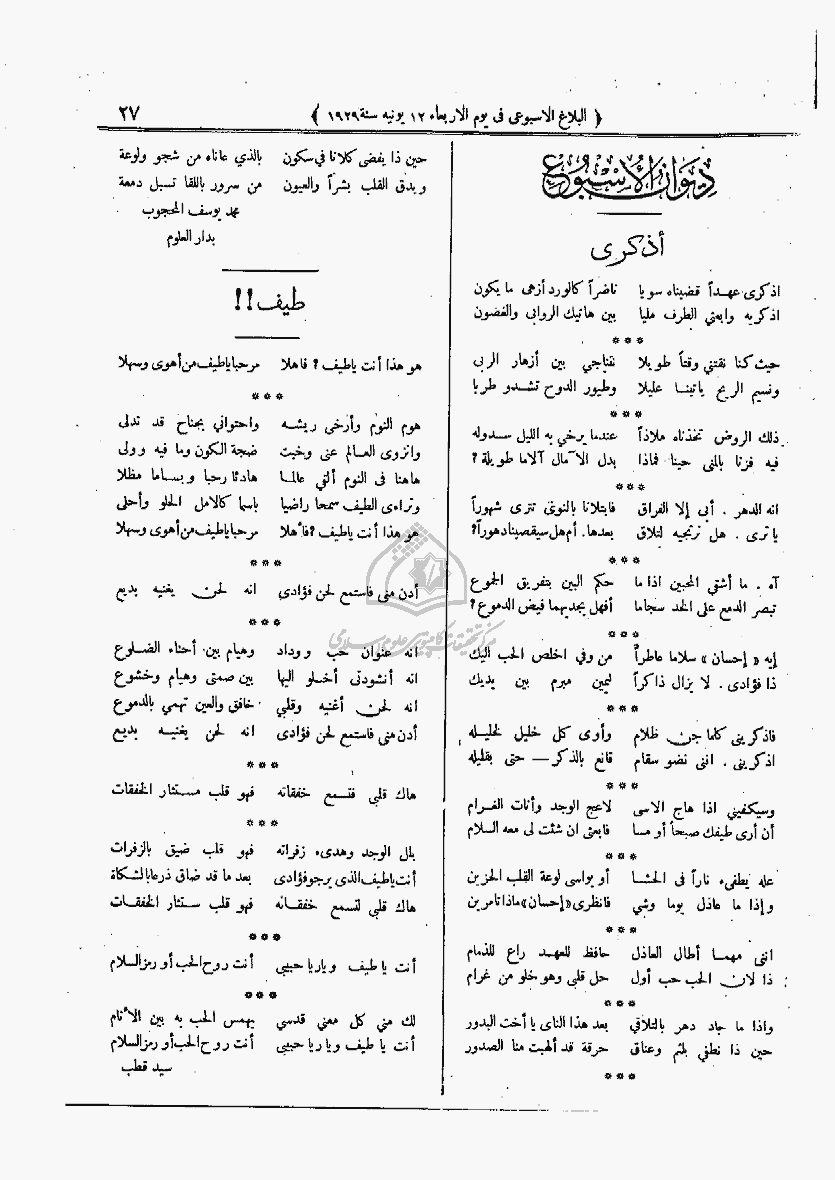 ﴿ البلاغ الاسبوعى فى يوم الاربعاء ١٢ يونيه سنة ١٩٢٩ ﴾ ٢٧
ديوان الأسبوع
أذكرى
اذكرى عهداً قضيناه سويا ناضراً كالورد أزهى ما يكون
اذكريه وابعثي الطرف مليا بين هاتيك الروابى والغصون
***
حيث كنا نقتني وقتاً طويلا نتناجي بين أزهار الربى
ونسيم الريح ياتينا عليلا وطيور الدوح تشدو طربا
***
ذلك الروض تخذناه ملاذاً عندما يرخي به الليل سدوله
فيه فزنا بالمنى حينا فماذا بدل الآمال آلاما طويلة ؟
***
انه الدهر . أبى إلا الفراق فابتلانا بالنوى تترى شهوراً
يا ترى . هل نرتجيه لتلاق بعدها . أم هل سيقصينا دهوراً؟
***
آه . ما أشقي المحبين اذا ما حكم البين بتفريق الجموع
تبصر الدمع على الخد سجاما أفهل يجديهما فيض الدموع ؟
***
إيه « إحسان » سلاما عاطراً من وفي اخلص الحب اليك
ذا فؤادى . لا يزال ذاكراً ليمين مبرم بين يديك
***
فاذكرينى كلما جن ظلام وأوى كل خليل لخليله
اذكرينى . اننى نضو سقام قانع بالذكر — حتى بقليله
***
وسيكفيني اذا هاج الاسى لاعج الوجد وأنات الغرام
أن أرى طيفك صبحاً أو مسا فابعثى ان شئت لى معه السلام
***
عله يطفىء ناراً فى الحشا أو يواسى لوعة القلب الحزين
وإذا ما عاذل يوما وشي فانظرى « إحسان » ماذا تامرين
***
انني مهما أطال العاذل حافظ للعهد راع للذمام
ذا لان الحب حب أول حل قلبى وهو خلو من غرام
***
واذا ما جاد دهر بالتلاقي بعد هذا الناى يا أخت البدور
حين ذا نطفي بلثم وعناق حرقة قد ألهبت منا الصدور
***
حين ذا يفضى كلانا في سكون بالذي عاناه من شجو ولوعة
ويدق القلب بشراً والعيون من سرور باللقا تسبل دمعة
محمد يوسف المحجوب
بدار العلوم
طيف !!
هو هذا أنت ياطيف ؟ فاهلا مرحبا ياطيف من أهوى وسهلا
***
هوم النوم وأرخى ريشه واحتوانى بجناح قد تدلى
وانزوى العالم عنى وخبت ضجة الكون وما فيه وولى
هاهنا فى النوم ألقي عالما هادئا رحبا وبساما مظلا
وتراءى الطيف سمحا راضيا باسما كالامل الحلو وأحلى
هو هذا أنت ياطيف ؟ فأهلا مرحبا ياطيف من أهوى وسهلا
***
أدن منى فاستمع لحن فؤادى انه لحن يغنيه بديع
***
انه عنوان حب ووداد وهيام بين أحناء الضلوع
انه أنشودتى أخلو اليها بين صمتى وهيام وخشوع
انه لحن أغنيه وقلبي خافق والعين تهمي بالدموع
أدن منى فاستمع لحن فؤادى انه لحن يغنيه بديع
***
هاك قلبي فتسمع خفقانه فهو قلب مستثار الخفقات
***
بلل الوجد وهدىء زفراته فهو قلب ضيق بالزفرات
أنت ياطيف الذى يرجو فؤادى بعد ما قد ضاق ذرعا بالشكاة
هاك قلبي لتسمع خفقانه فهو قلب ستثار الخفقات
***
أنت يا طيف ويا ريا حبيبى أنت روح الحب أو رمز السلام
***
لك منى كل معني قدسي يهمس الحب به بين الأنام
أنت يا طيف ويا ريا حبيبى أنت روح الحب أو رمز السلام
سيد قطب
مركز تحقيقات كامپيوترى علوم اسلامى